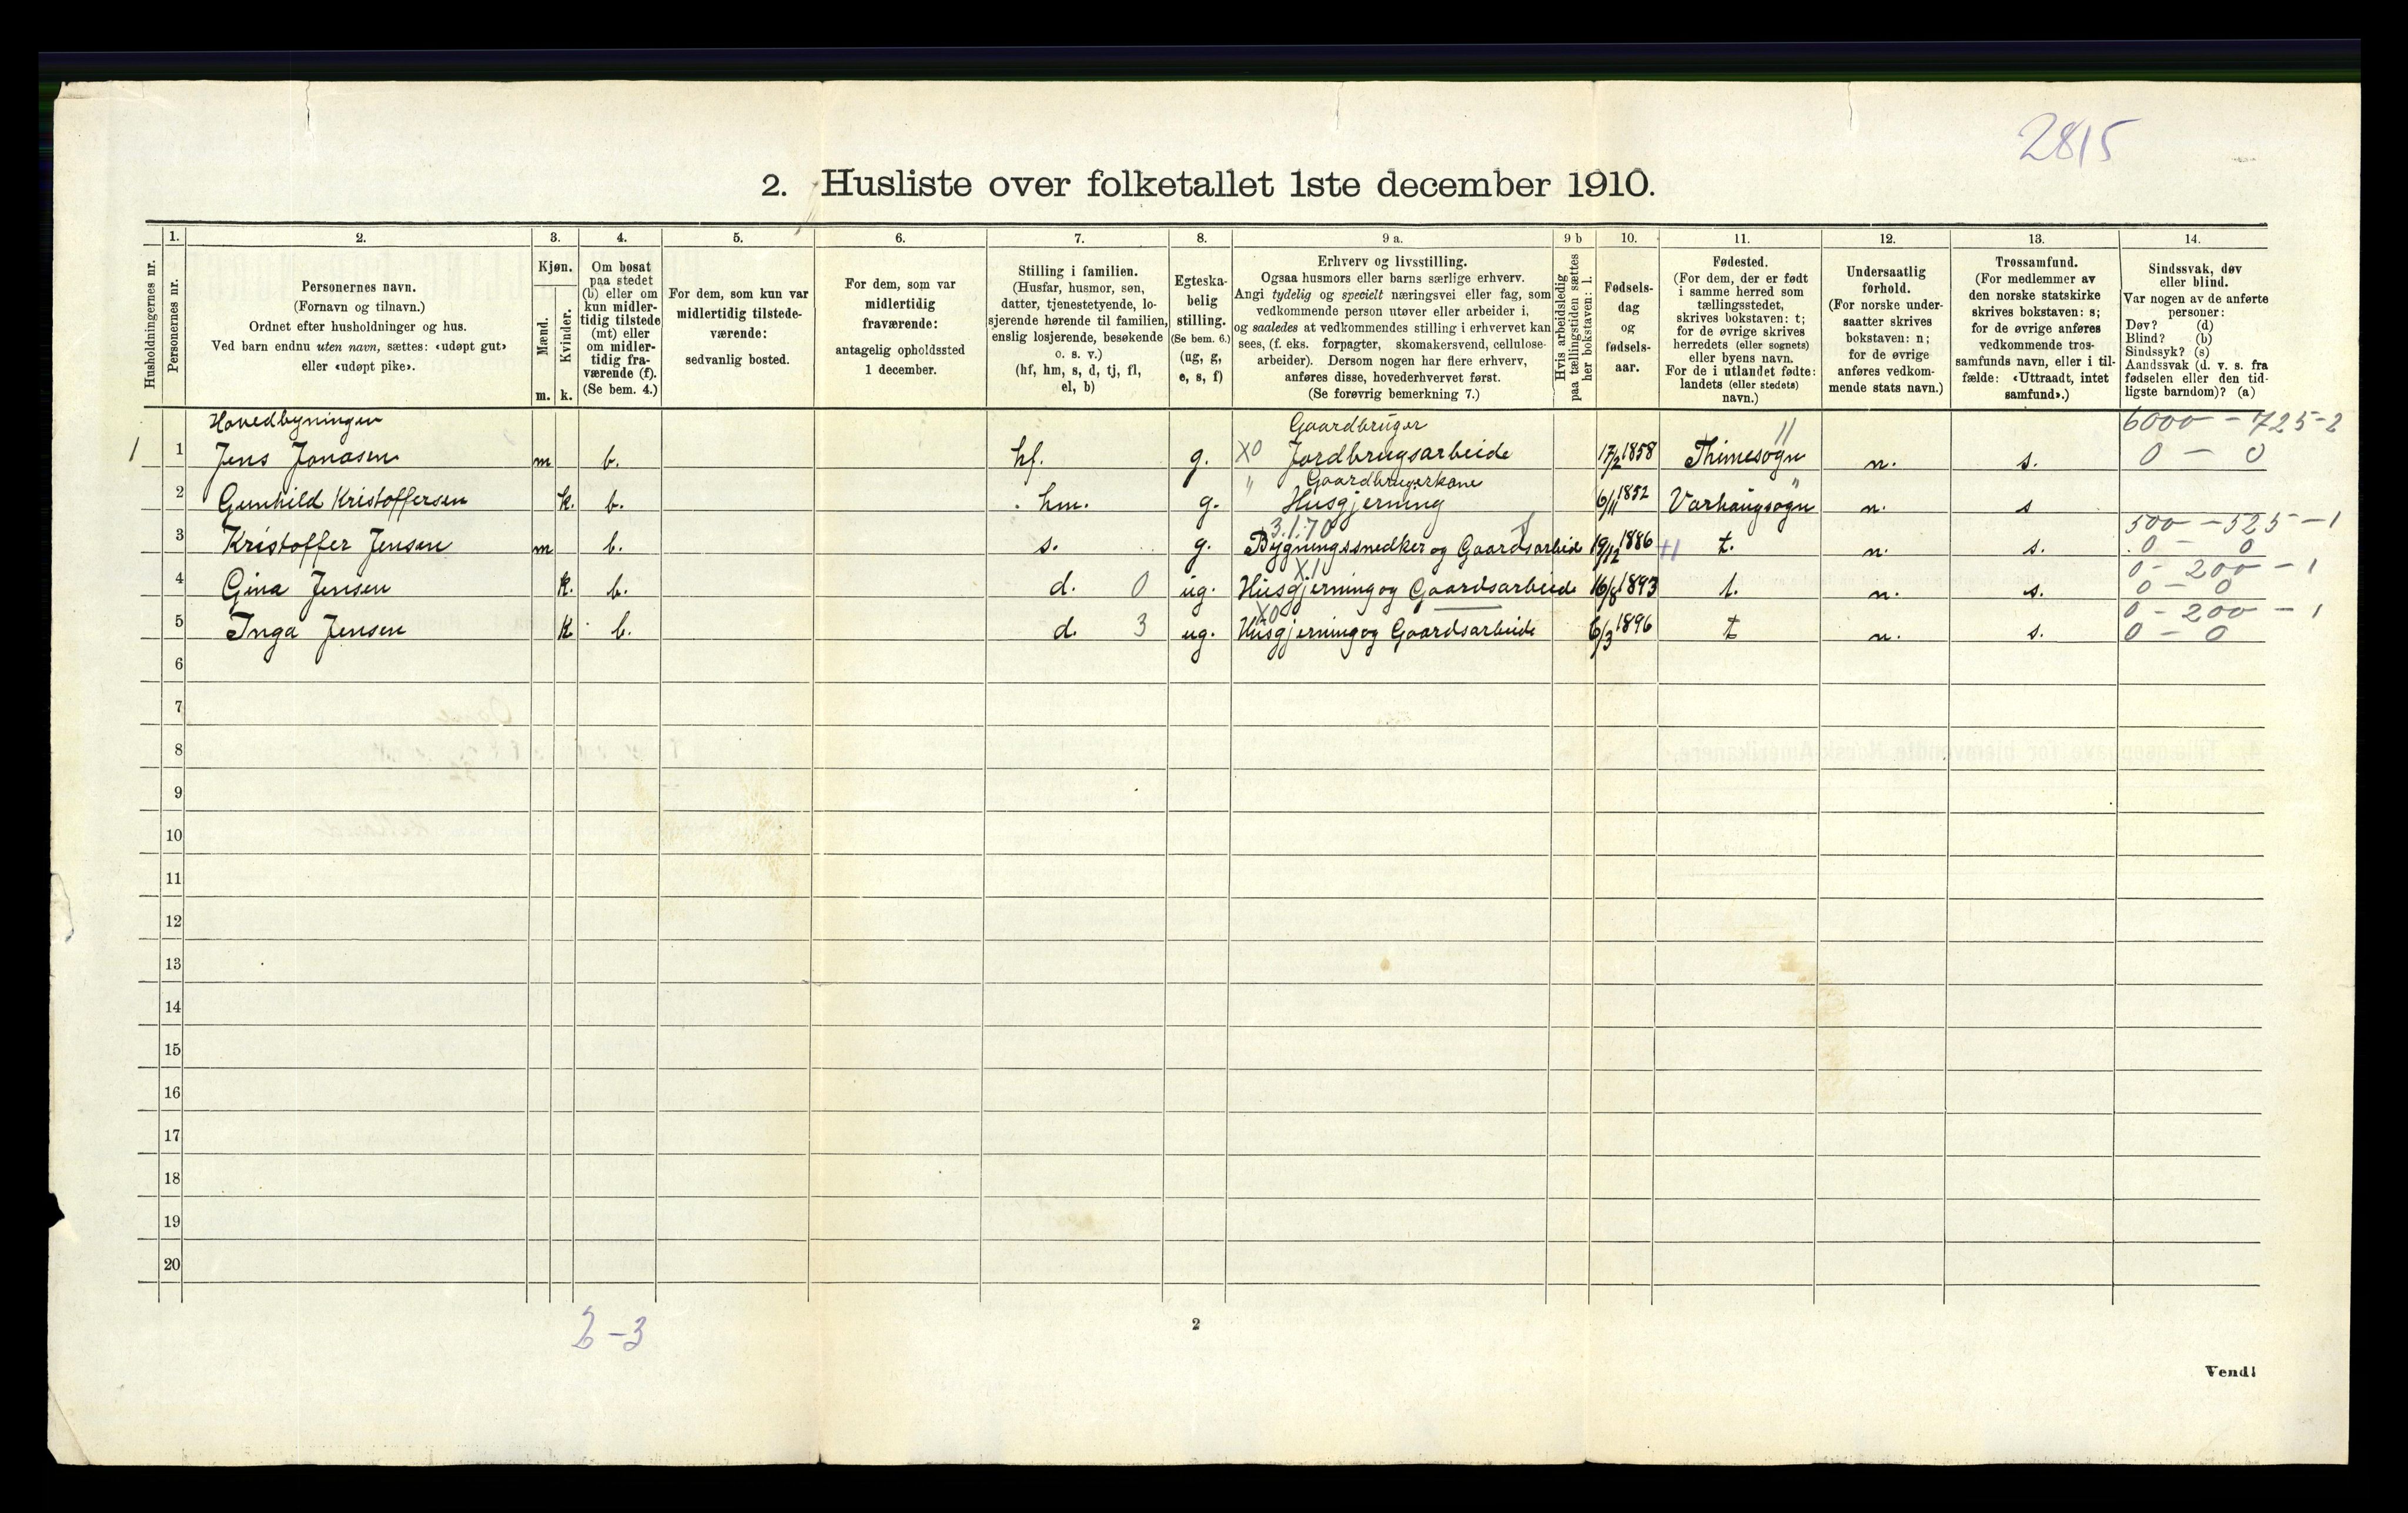 2815
2. Husliste over folketallet 1ste december 1910.
Husholdningernes nr.
1.
Personernes nr.
2.
Personernes navn.
(Fornavn og tilnavn.)
Ordnet efter husholdninger og hus.
Ved barn endnu uten navn, sættes: «udøpt gut»
eller «udøpt pike».
3.
Kjøn.
Mænd.
Kvinder.
m. k.
4.
Om bosat
paa stedet
(b) eller om
kun midler-
tidig tilstede
(mt) eller
om midler-
tidig fra-
værende (f).
(Se bem. 4.)
5.
For dem, som kun var
midlertidig tilstede-
værende:
sedvanlig bosted.
6.
For dem, som var
midlertidig
fraværende:
antagelig opholdssted
1 december.
7.
Stilling i familien.
(Husfar, husmor, søn,
datter, tjenestetyende, lo-
sjerende hørende til familien,
enslig losjerende, besøkende
o. s. v.)
(hf, hm, s, d, tj, fl,
el, b)
8.
Egteska-
belig
stilling.
(Se bem. 6.)
(ug, g,
e, s, f)
9 a.
Erhverv og livsstilling.
Ogsaa husmors eller barns særlige erhverv.
Angi tydelig og specielt næringsvei eller fag, som
vedkommende person utøver eller arbeider i,
og saaledes at vedkommendes stilling i erhvervet kan
sees, (f. eks. forpagter, skomakersvend, cellulose-
arbeider). Dersom nogen har flere erhverv,
anføres disse, hovederhvervet først.
(Se forøvrig bemerkning 7.)
9 b
Hvis arbeidsledig
paa tællingstiden sættes
her bokstaven: l.
10.
Fødsels-
dag
og
fødsels-
aar.
11.
Fødested.
(For dem, der er født
i samme herred som
tællingsstedet,
skrives bokstaven: t;
for de øvrige skrives
herredets (eller sognets)
eller byens navn.
For de i utlandet fødte:
landets (eller stedets)
navn.)
12.
Undersaatlig
forhold.
(For norske under-
saatter skrives
bokstaven: n;
for de øvrige
anføres vedkom-
mende stats navn.)
13.
Trossamfund.
(For medlemmer av
den norske statskirke
skrives bokstaven: s;
for de øvrige anføres
vedkommende tros-
samfunds navn, eller i til-
fælde: «Uttraadt, intet
samfund».)
14.
Sindssvak, døv
eller blind.
Var nogen av de anførte
personer:
Døv? (d)
Blind? (b)
Sindssyk? (s)
Aandssvak (d. v. s. fra
fødselen eller den tid-
ligste barndom)? (a)
Hovedbygningen Gaardbruger " 6000 - 725-2
1 1 Jens Jonasen m b. hf. g. X0 Jordbrugsarbeide 17/2 1858 Thimesogn n. s. 0 - 0
" Gaardbrugerkone "
2 Gunhild Kristoffersen k. b. hm. g. Husgjerning 6/11 1852 Varhaugsogn n. s
3.1.70 500 - 525 - 1
3 Kristoffer Jensen m b. s. g. Bygningssnedker og Gaardsarbeid 19/12 1886 +1 t. n. s. 0 - 0
X1 0 - 200 - 1
4 Gina Jensen k. b. d. 0 ug. Husgjerning og Gaardsarbeide 16/8 1893 t. n. s. 0 - 0
X0 0 - 200 - 1
5 Inga Jensen k b. d. 3 ug. Husgjerning og Gaardsarbeide 6/3 1896 t n. s. 0 - 0
6
7
8
9
10
11
12
13
14
15
16
17
18
19
20
2-3
2
Vend!